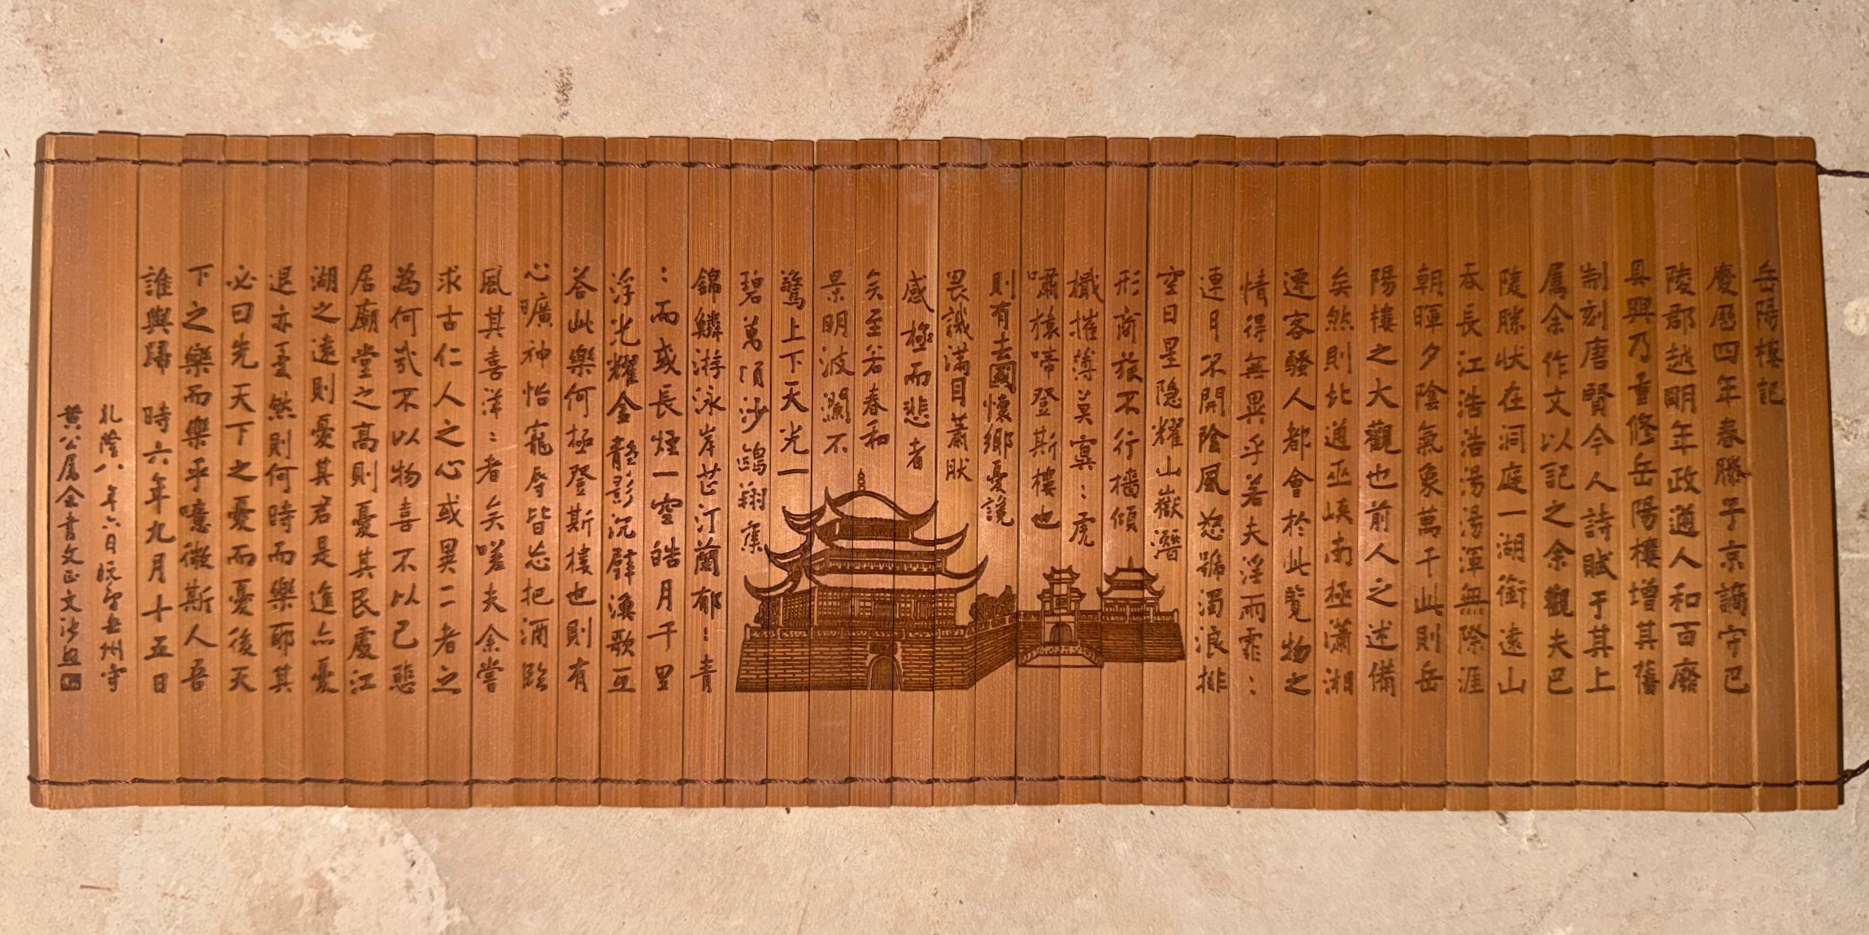 岳陽樓記
慶曆四年春滕子京謫守巴
陵郡越明年政通人和百廢
具興乃重修岳陽樓增其舊
制刻唐賢今人詩賦于其上
屬余作文以記之余觀夫巴
陵勝狀在洞庭一湖銜遠山
吞長江浩浩湯湯渾無際涯
朝暉夕陰氣象萬千此則岳
陽樓之大觀也前人之述備
矣然則北通巫峽南極瀟湘
遷客騷人都會於此覽物之
情得無異乎若夫淫雨霏：
連月不開陰風怒號濁浪排
空日星隐耀山嶽潛
形商旅不行檣傾
檝摧薄莫冥：虎
嘯猿啼登斯樓也
則有去國懷鄉憂讒
畏譏滿目蕭肰
感極而悲者
矣至若春和
景明波瀾不
驚上下天光一
碧萬頃沙鷗翔集
錦鱗游泳岸芷汀蘭郁：青
：而或長煙一空皓月千里
浮光耀金静影沉璧漁歌互
答此樂何極登斯樓也則有
心曠神怡寵辱皆忘把酒臨
風其喜洋：者矣嗟夫余嘗
求古仁人之心或異二者之
為何哉不以物喜不以己悲
居廟堂之高則憂其民處江
湖之遠則憂其君是進亦憂
退亦憂然則何時而樂耶其
必曰先天下之憂而憂後天
下之樂而樂乎噫微斯人吾
誰與歸 時六年九月十五日
乾隆八年六日 岳州守
黄公属余書文正文